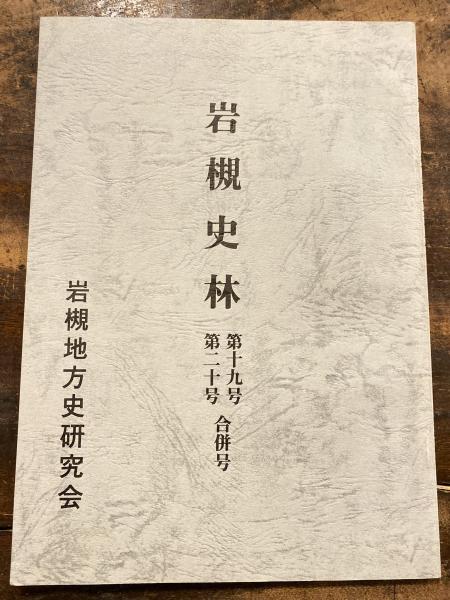 岩槻史林
第十九号
第二十号
合併号
岩槻地方史研究会